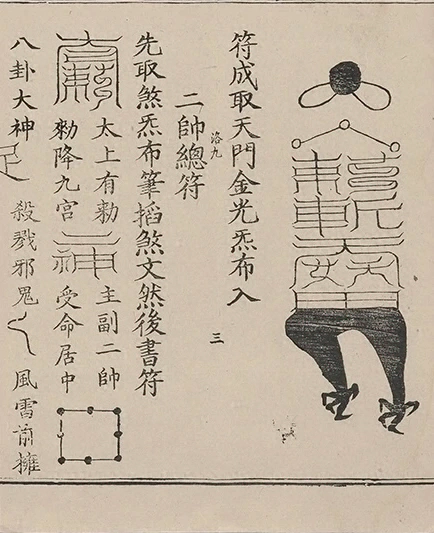 符成取天門金光炁布入
洛九
三
二帥總符
先取煞炁布筆掐煞文然後書符
太上有勅
主副二帥
勑降九宮
受命居中
八卦大神
殺戮邪鬼
風雪前擁